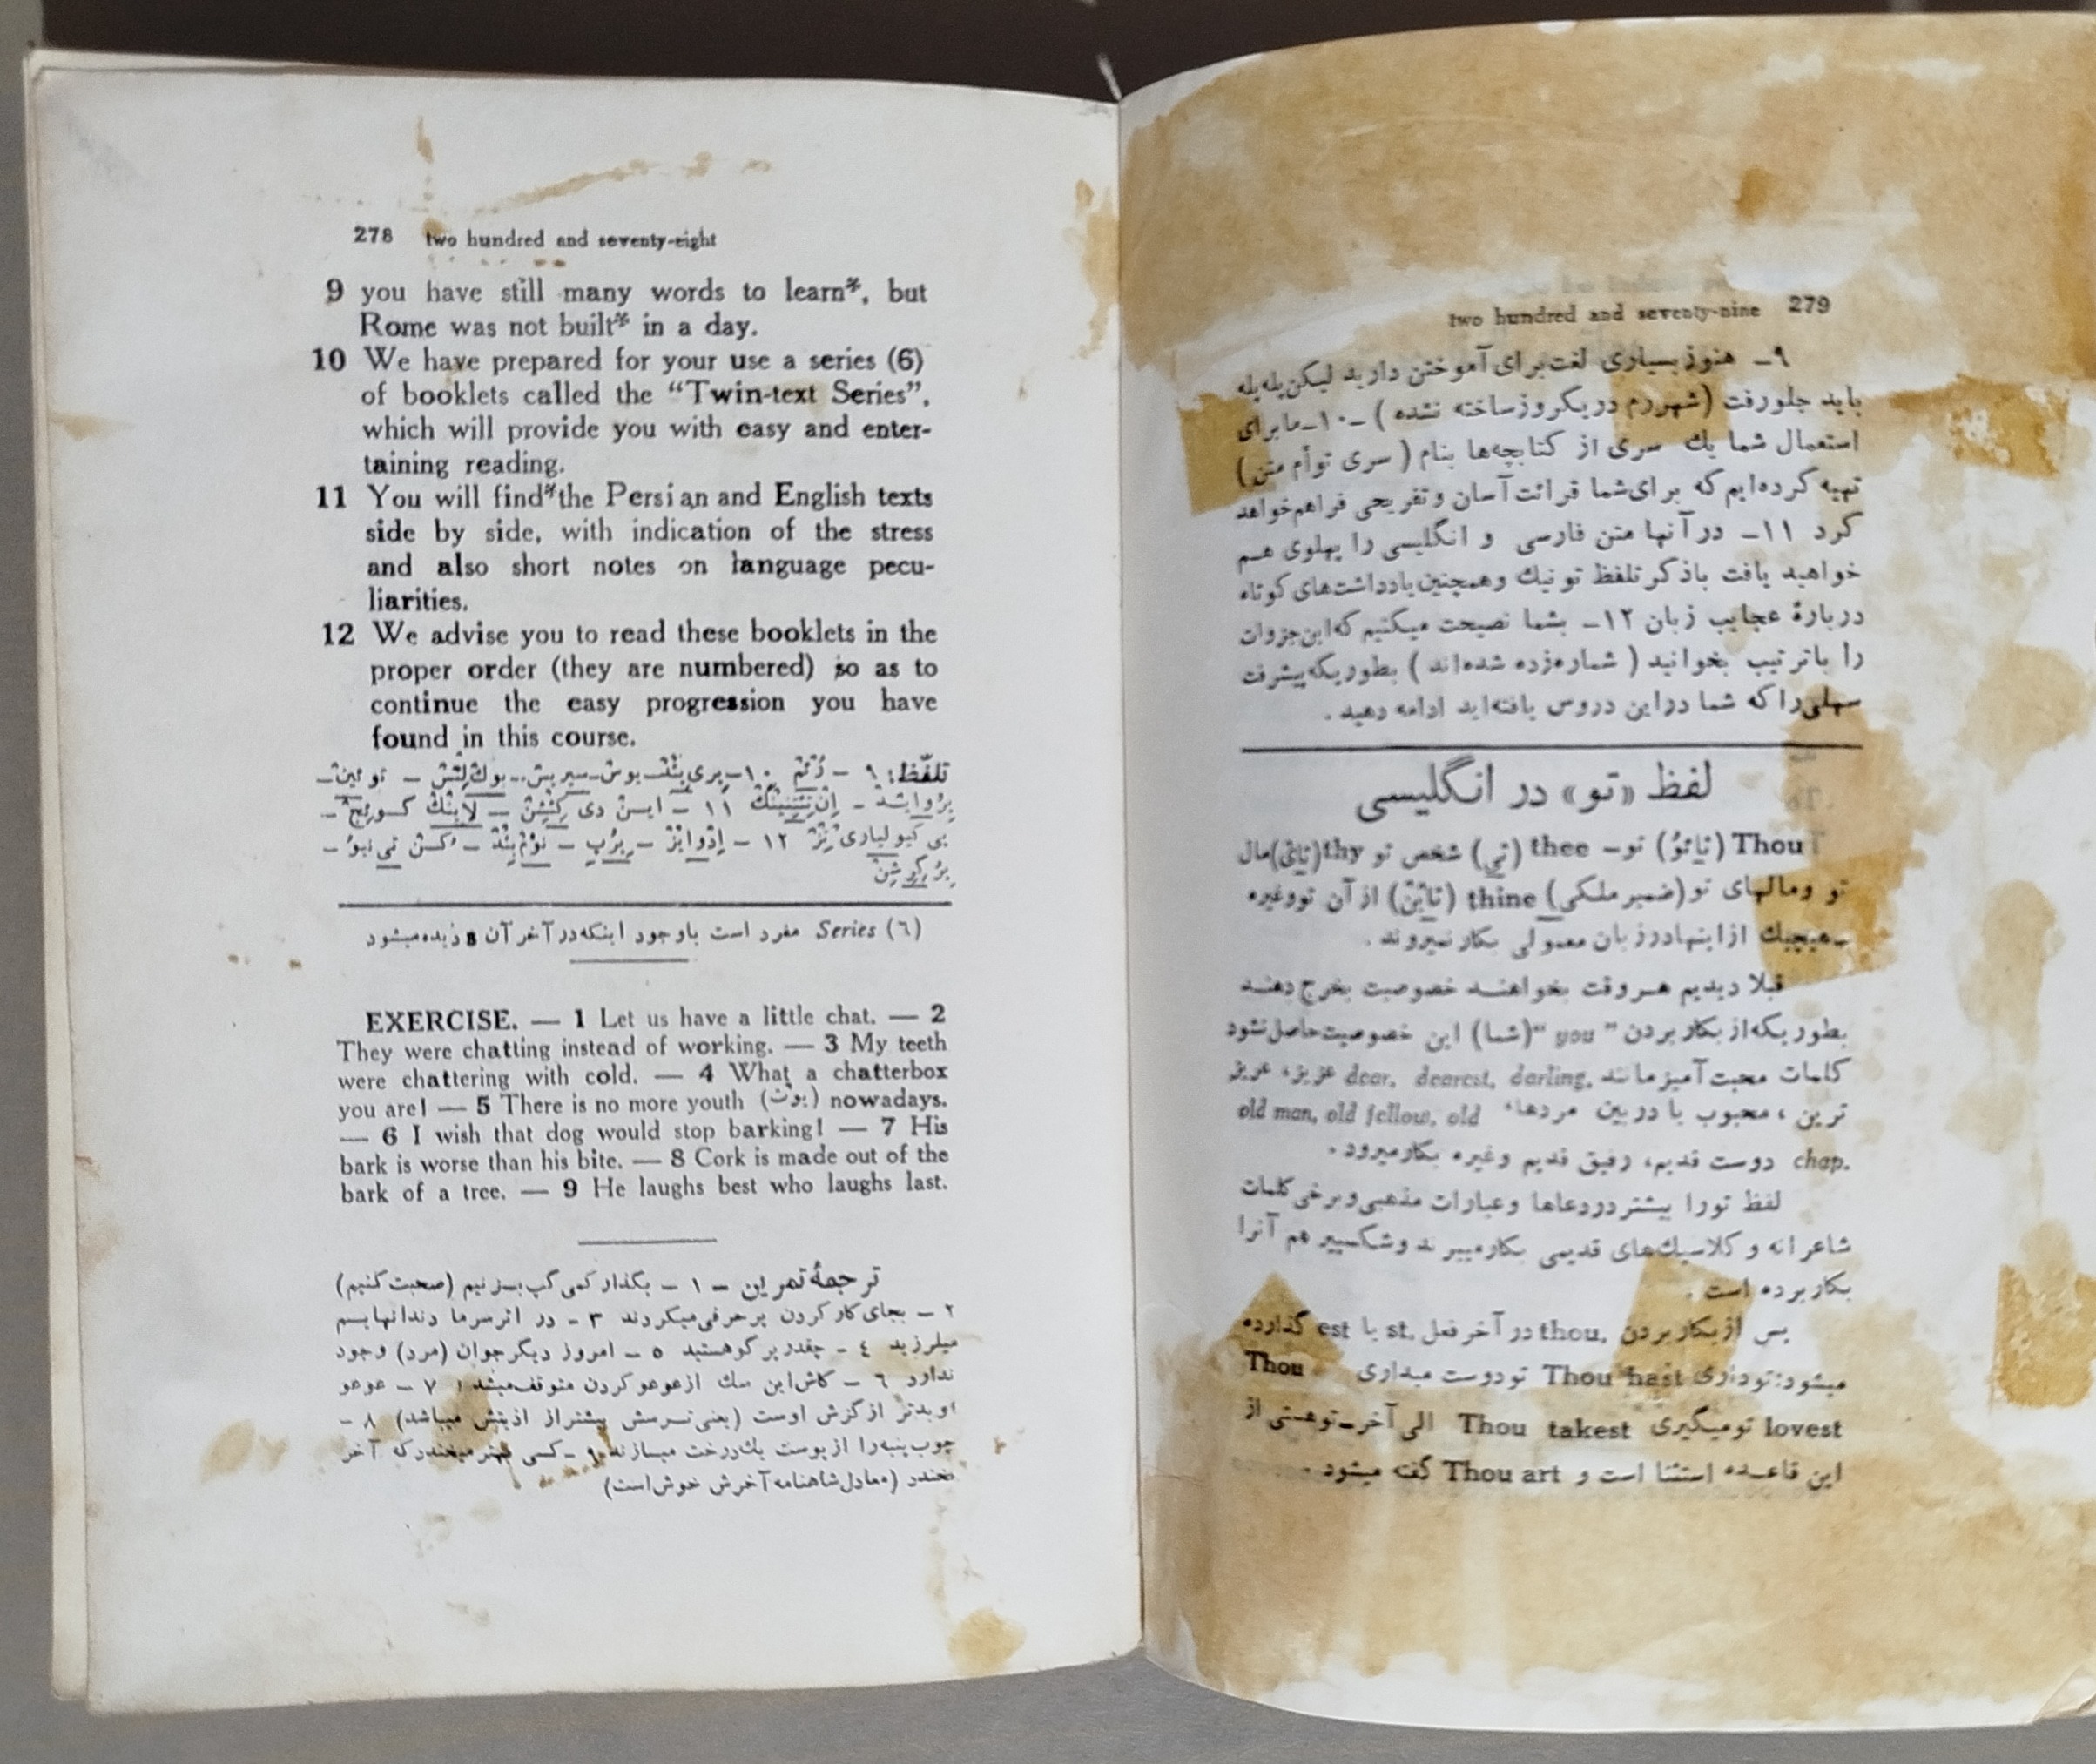 278 two hundred and seventy-eight
9 you have still many words to learn*, but
Rome was not built* in a day.
10 We have prepared for your use a series (6)
of booklets called the “Twin-text Series”,
which will provide you with easy and enter-
taining reading.
11 You will find* the Persian and English texts
side by side, with indication of the stress
and also short notes on language pecu-
liarities.
12 We advise you to read these booklets in the
proper order (they are numbered) so as to
continue the easy progression you have
found in this course.
تلفّظ: ۹ –
(٦) Series مفرد است باوجود اینکه در آخر آن s دیده میشود
EXERCISE. — 1 Let us have a little chat. — 2
They were chatting instead of working. — 3 My teeth
were chattering with cold. — 4 What a chatterbox
you are! — 5 There is no more youth (یوث) nowadays.
— 6 I wish that dog would stop barking! — 7 His
bark is worse than his bite. — 8 Cork is made out of the
bark of a tree. — 9 He laughs best who laughs last.
ترجمهٔ تمرین – ۱ – بگذار کمی گپ بزنیم (صحبت کنیم)
۲ – بجای کار کردن پرحرفی میکردند ۳ – در اثر سرما دندانهایم
میلرزید ٤ – چقدر پرگو هستید ٥ – امروز دیگر جوان (مرد) وجود
ندارد ٦ – کاش این سك از عوعو کردن متوقف میشد! ۷ – عوعو
او بدتر از گزش اوست (یعنی ترسش بیشتر از اذیتش میباشد) ۸ –
چوب پنبه را از پوست یك درخت میسازند ۹ – کسی بهتر میخندد که آخر
بخندد (معادل شاهنامه آخرش خوش است)
two hundred and seventy-nine 279
۹ – هنوز بسیاری لغت برای آموختن دارید لیکن پله پله
باید جلو رفت (شهر رم در یکروز ساخته نشده) – ۱۰ – ما برای
استعمال شما یك سری از کتابچه‌ها بنام (سری توأم متن)
تهیه کرده‌ایم که برای شما قرائت آسان و تفریحی فراهم خواهد
کرد ۱۱ – در آنها متن فارسی و انگلیسی را پهلوی هم
خواهید یافت با ذکر تلفظ تونیك و همچنین یادداشت‌های کوتاه
دربارهٔ عجایب زبان ۱۲ – بشما نصیحت میکنیم که این جزوات
را باترتیب بخوانید (شماره‌زده شده‌اند) بطوریکه پیشرفت
سهلی را که شما در این دروس یافته‌اید ادامه دهید .
لفظ «تو» در انگلیسی
Thou (ثائوُ) تو – thee (ثی) شخص تو thy (ثای) مال
تو و مالهای تو (ضمیر ملکی) thine (ثاین) از آن تو وغیره
– هیچیك از اینها در زبان معمولی بکار نمیروند .
قبلا دیدیم هر وقت بخواهند خصوصیت بخرج دهند
بطوریکه از بکار بردن “you” (شما) این خصوصیت حاصل نشود
کلمات محبت آمیز مانند dear, dearest, darling, عزیز، عزیز
ترین ، محبوب یا در بین مردها، old man, old fellow, old
chap. دوست قدیم، رفیق قدیم وغیره بکار میرود .
لفظ تو را بیشتر در دعاها و عبارات مذهبی و برخی کلمات
شاعرانه و کلاسیك‌های قدیمی بکار میبرند و شکسپیر هم آنرا
بکار برده است .
پس از بکار بردن thou, در آخر فعل st, یا est گذارده
میشود: تو داری Thou hast تو دوست میداری Thou
lovest تو میگیری Thou takest الی آخر – تو هستی از
این قاعده استثنا است و Thou art گفته میشود .